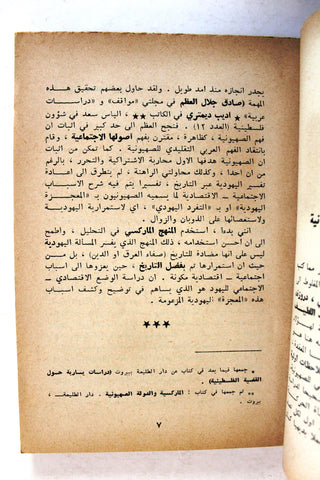 يجدر انجازه منذ امد طويل. ولقد حاول بعضهم تحقيق هذه
المهمة (صادق جلال العظم في مجلتي «مواقف» و«دراسات
عربية» * اديب ديمتري في الكاتب ** ، الياس سعد في شؤون
فلسطينية (العدد ١٢) . فنجح العظم الى حد كبير في اثبات ان
فهم الصهيونية ، كظاهرة ، مقترن بفهم اصولها الاجتماعية ، وقام
بانتقاد الفهم العربي التقليدي للصهيونية . كما تمكن من اثبات
ان الصهيونية هدفها الاول محاربة الاشتراكية والتحرر ، بالرغم
من ان احدا ، وكذلك محاولتي الراهنة ، لم يتطرق الى اعادة
تفسير اليهودية عبر التاريخ ، تفسيرا يتم فيه شرح الاسباب
الاجتماعية ــ الاقتصادية لما يسميه الصهيونيون بـ «المعجزة
اليهودية» او «التفرد اليهودي» ، اي لاستمرارية اليهودية
ولاستعصائها على الذوبان والزوال .
انني بدءا ، استخدم المنهج الماركسي في التحليل ، واطمح
الى ان احسن استخدامه ، ذلك المنهج الذي يفسر المسالة اليهودية
ليس على انها مضادة للتاريخ (صفاء العرق او الدين) ، بل من
حيث ان استمرارها تم بفضل التاريخ ، حين يعزوها الى اسباب
اجتماعية ــ اقتصادية مكونة . ان دراسة الوضع الاقتصادي ــ
الاجتماعي لليهود هو الذي يساهم في توضيح وكشف اسباب
هذه «المعجزة» اليهودية المزعومة .
***
* جمعها فيما بعد في كتاب عن دار الطليعة ببيروت (دراسات يسارية حول
القضية الفلسطينية) .
** تم جمعها في كتاب : الماركسية والدولة الصهيونية . دار الطليعة ــ
بيروت .
٧